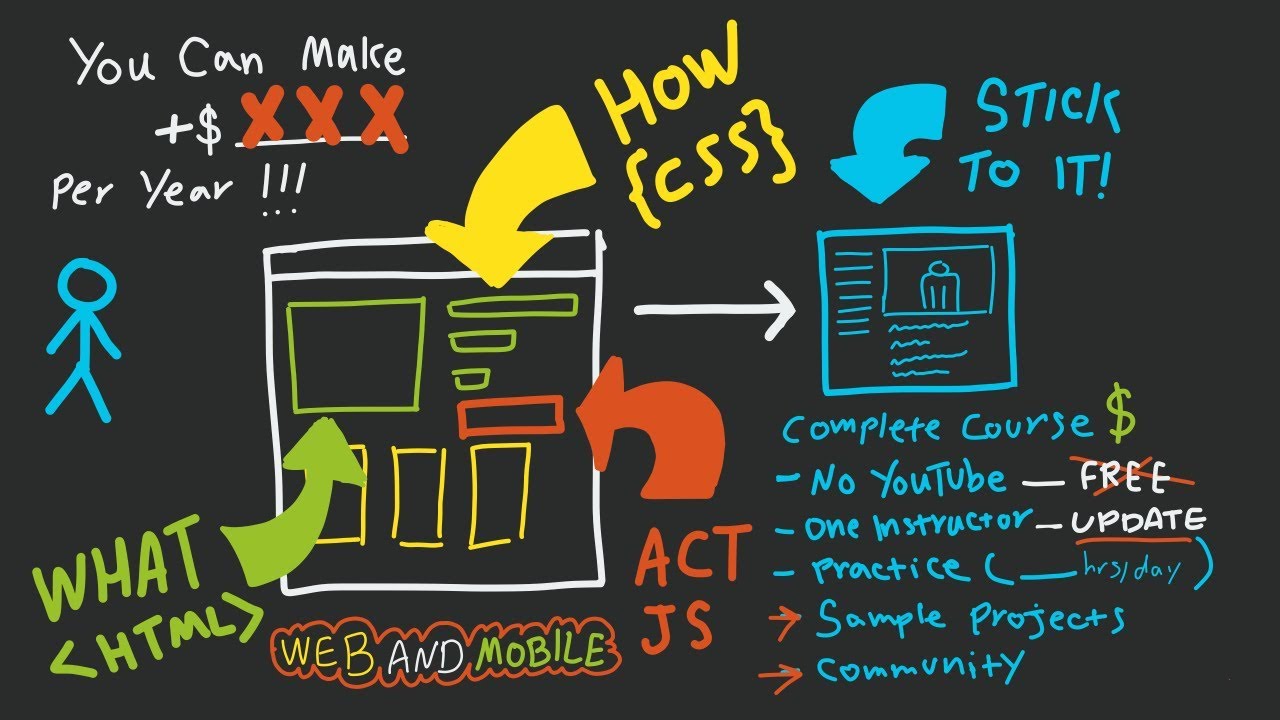 You Can Make
+$ XXX
Per Year !!!
How
{CSS}
STICK
TO IT!
WHAT
<HTML>
ACT
JS
WEB AND MOBILE
Complete Course $
- No YouTube — FREE
- One Instructor — UPDATE
- Practice (___ hrs/day)
→ Sample Projects
→ Community